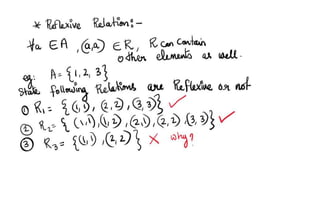 * Reflexive Relation:-
∀a ∈ A , (a,a) ∈ R, R can contain
other elements as well.
eg: A = {1, 2, 3}
State following Relations are Reflexive or not
① R₁ = {(1,1), (2,2), (3,3)} ✓
② R₂ = {(1,1),(1,2), (2,1), (2,2), (3,3)} ✓
③ R₃ = {(1,1), (2,2)} ✗ why?